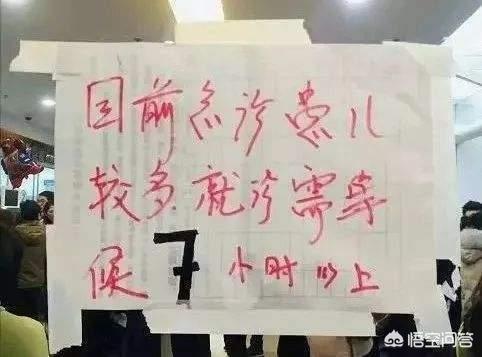 目前急诊患儿
较多就诊需等
候7小时以上
悟空问答